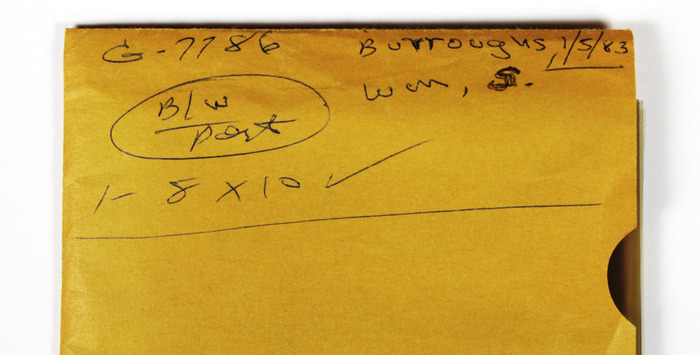 G-7786 Burroughs, 1/5/83
Wm, S.
B/w
Port
1- 8 X 10 ✓